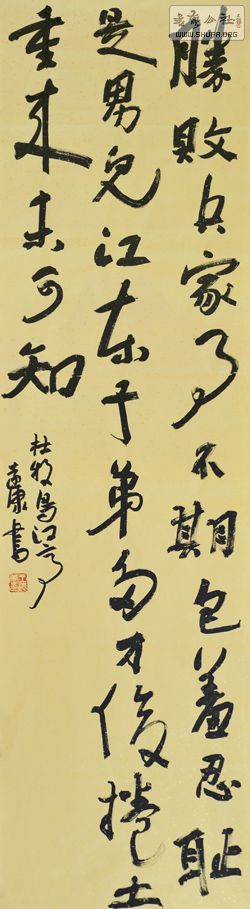 勝敗兵家事不期包羞忍耻
是男兒江东子弟多才俊捲土
重来未可知
杜牧烏江亭
康書
WWW.SHUFA.ORG